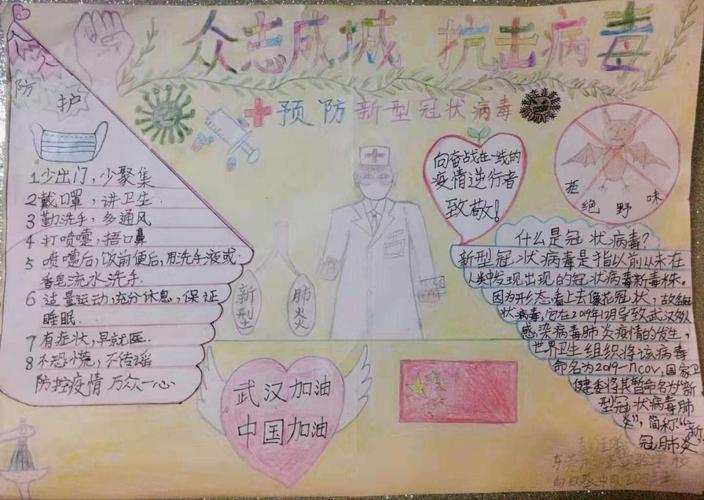 众志成城 抗击病毒
预防新型冠状病毒
个人
防护
1 少出门，少聚集
2 戴口罩，讲卫生.
3 勤洗手，多通风
4 打喷嚏，捂口鼻
5 喷嚏后，饭前便后，用洗手液或
香皂流水洗手.
6 适量运动，充分休息，保证
睡眠.
7 有症状，早就医.
8 不恐慌，不传谣
防控疫情 万众一心
新型
肺炎
向奋战在一线的
疫情逆行者
致敬！
拒绝野味
什么是冠状病毒？
新型冠状病毒是指以前从未在
人类中发现出现的冠状病毒新毒株.
因为形态看上去像花冠状，故名冠
状病毒，它在2019年12月导致武汉数人
感染病毒肺炎疫情的发生，
世界卫生组织将该病毒
命名为2019-nCOV，国家卫
健委将其暂命名为“新
型冠状病毒肺
炎”，简称“新
冠肺炎”
武汉加油
中国加油